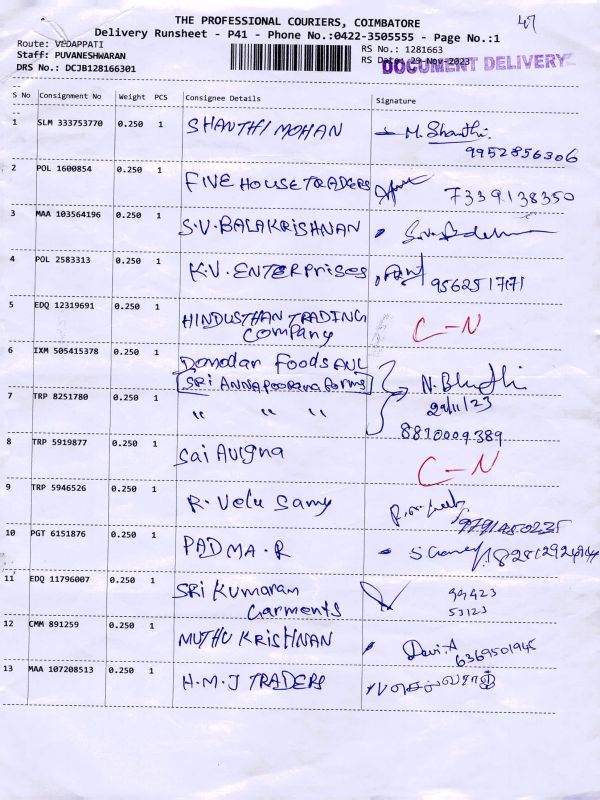 THE PROFESSIONAL COURIERS, COIMBATORE
Delivery Runsheet - P41 - Phone No.:0422-3505555 - Page No.:1
Route: VEDAPPATI
Staff: PUVANESHWARAN
DRS No.: DCJB128166301
RS No.: 1281663
RS Date: 29-Nov-2023
DOCUMENT DELIVERY
S No Consignment No Weight PCS Consignee Details Signature
1 SLM 333753770 0.250 1 SHANTHI MOHAN M. Shanthi.
9952856306
2 POL 1600854 0.250 1 FIVE HOUSE TRADERS 7339138350
3 MAA 103564196 0.250 1 S.V. BALAKRISHNAN
4 POL 2583313 0.250 1 K.V. ENTERPRISES 9562517171
5 EDQ 12319691 0.250 1 HINDUSTHAN TRADING
Company
C-N
6 IXM 505415378 0.250 1 Domodar Foods
SRI ANNAPOORANA Forms
7 TRP 8251780 0.250 1 " " "
29/11/23
8810009389
8 TRP 5919877 0.250 1 Sai Avigna
C-N
9 TRP 5946526 0.250 1 R. Velu Samy
10 PGT 6151876 0.250 1 PADMA.R
11 EDQ 11796007 0.250 1 SRI Kumaram
Garments
99423
53123
12 CMM 891259 0.250 1 MUTHU KRISHNAN Devi.A
6369501945
13 MAA 107208513 0.250 1 H.M.J TRADERS